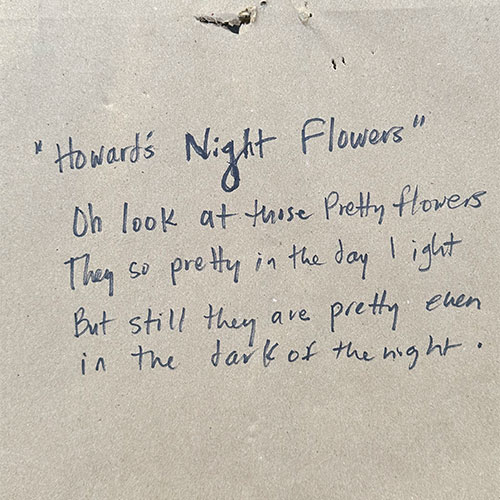 "Howard's Night Flowers"
Oh look at those Pretty flowers
They so pretty in the day light
But still they are pretty even
in the dark of the night.